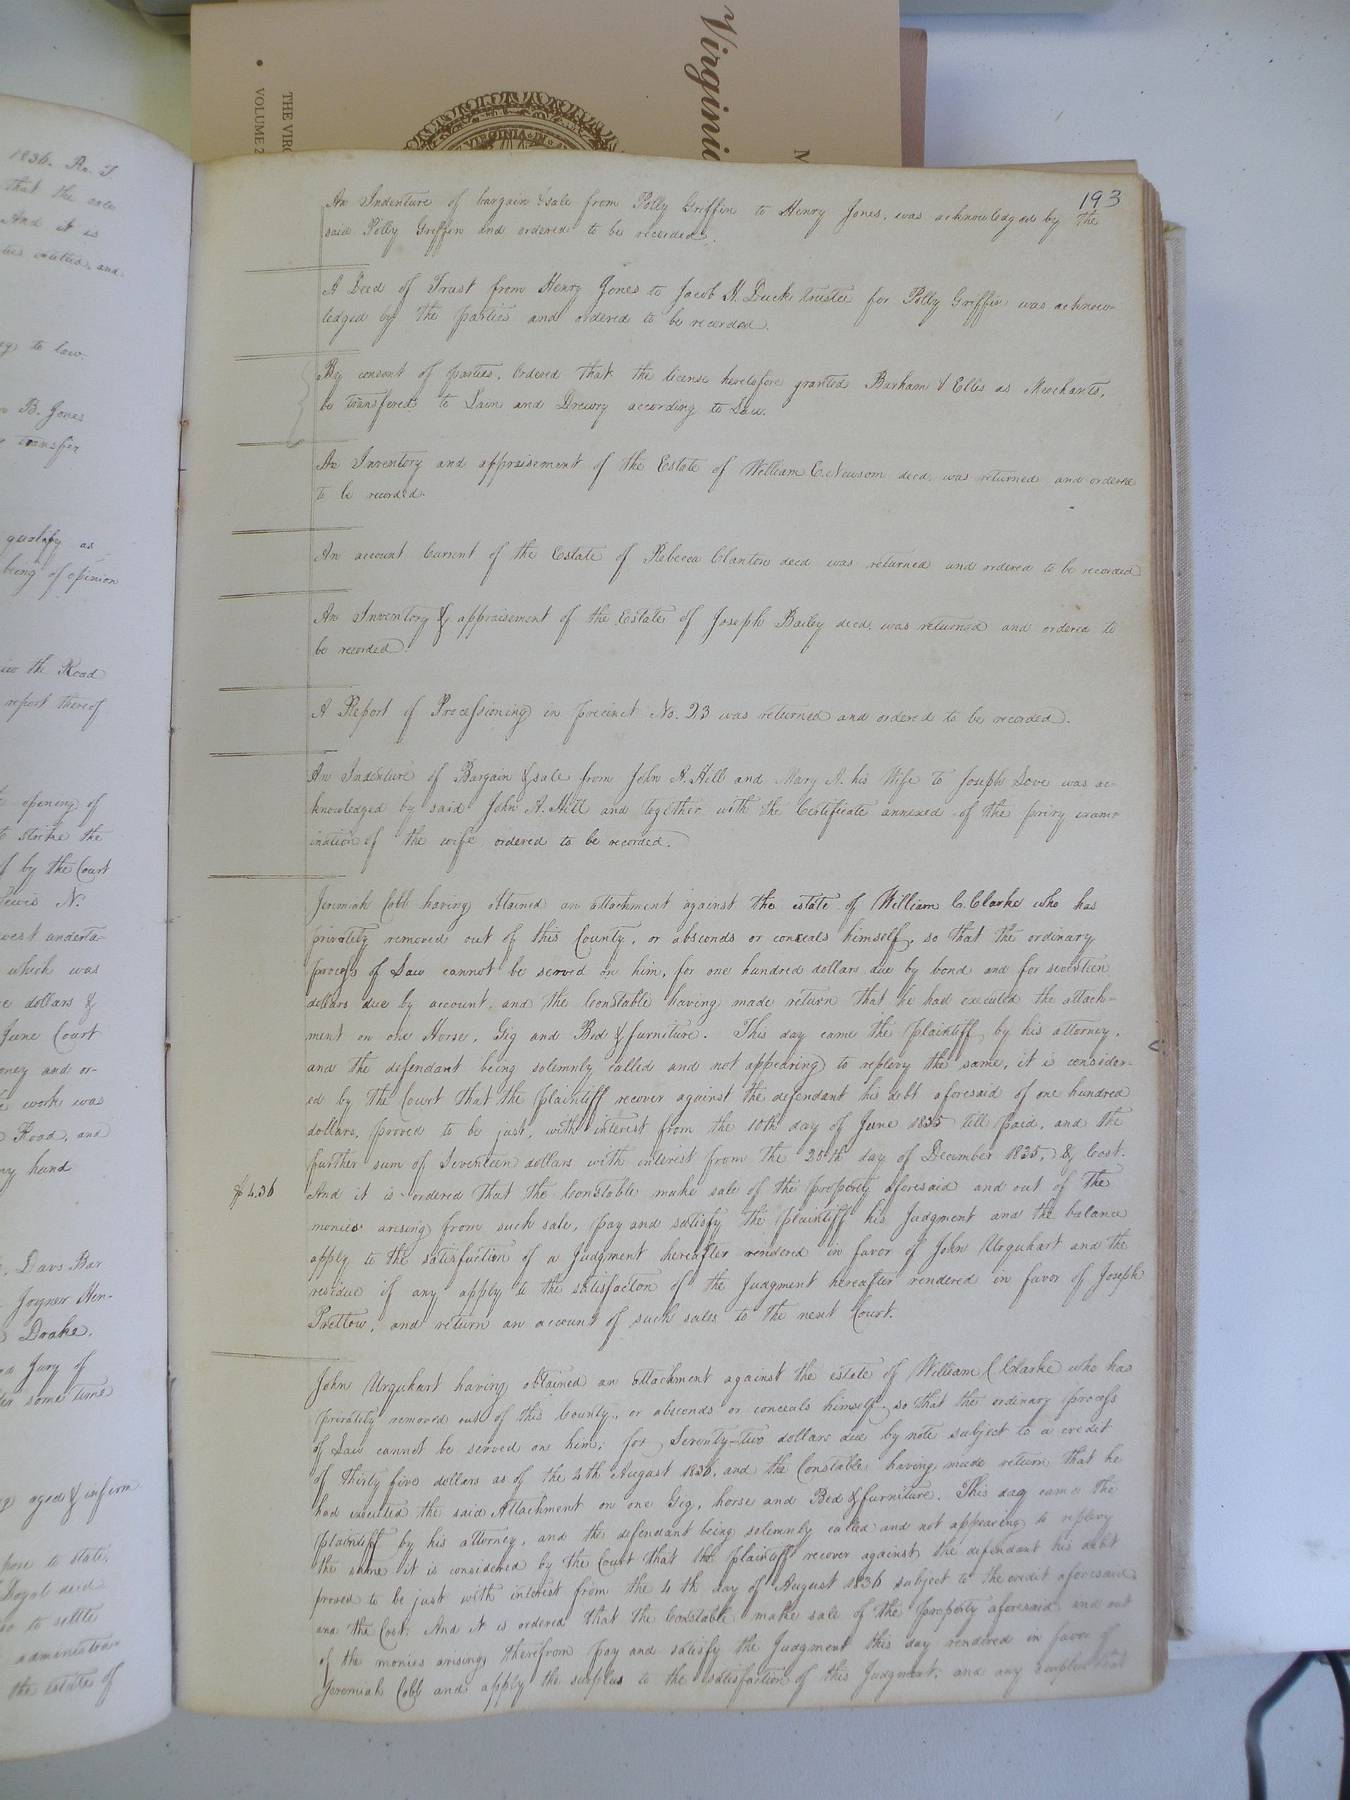 Virginia
THE VIRG
VOLUME 2
VIRGINIA IN
1836. Pr. J
that the sale
And it is
ties entitled, and
ey to law.
B. Jones
transfer
qualify as
being of opinion
iew the Road
report thereof
opening of
to strike the
f by the Court
Lewis N.
west underta-
which was
e dollars &
June Court
oney and or-
e work was
Road, and
my hand
Davs Bar
Joyner Hen-
Drake.
a Jury of
ter some time
aged & infirm
here to state,
Loyal decd
to settle
administra-
the estate of
193
An Indenture of bargain & sale from Polly Griffin to Henry Jones, was acknowledged by the
said Polly Griffin and ordered to be recorded.
A Deed of Trust from Henry Jones to Jacob H. Duck trustee for Polly Griffin was acknow-
ledged by the parties and ordered to be recorded.
By consent of parties, Ordered that the license heretofore granted Barham & Ellis as Merchants,
be transfered to Lain and Drewry according to Law.
An Inventory and appraisement of the Estate of William C. Newsom decd. was returned and ordered
to be recorded.
An account Current of the Estate of Rebecca Clanton decd was returned and ordered to be recorded
An Inventory & appraisement of the Estate of Joseph Bailey decd. was returned and ordered to
be recorded.
A Report of Processioning in precinct No. 23 was returned and ordered to be recorded.
An Indenture of Bargain & sale from John A. Hill and Mary A. his Wife to Joseph Love was ac-
knowledged by said John A. Hill and together with the Certificate annexed of the privy exam-
ination of the wife ordered to be recorded.
Jeremiah Cobb having obtained an attachment against the estate of William C. Clarke who has
privately removed out of this County, or absconds or conceals himself, so that the ordinary
process of Law cannot be served on him, for one hundred dollars due by bond and for seventeen
dollars due by account, and the Constable having made return that he had executed the attach-
ment on one Horse, Gig and Bed & furniture. This day came the plaintiff by his attorney,
and the defendant being solemnly called and not appearing to replevy the same, it is consider-
ed by the Court that the plaintiff recover against the defendant his debt aforesaid of one hundred
dollars, proved to be just, with interest from the 10th day of June 1835 till paid, and the
further sum of Seventeen dollars with interest from the 25th day of December 1835, & Cost.
$4.36 And it is ordered that the Constable make sale of the property aforesaid and out of the
monies arising from such sale, pay and satisfy the plaintiff his Judgment and the balance
apply to the satisfaction of a Judgment hereafter rendered in favor of John Urquhart and the
residue if any apply to the satisfacton of the Judgment hereafter rendered in favor of Joseph
Pretlow, and return an account of such sales to the next Court.
John Urquhart having obtained an attachment against the estate of William C Clarke who has
privately removed out of this County, or absconds or conceals himself so that the ordinary process
of Law cannot be served on him, for Seventy-two dollars due by note subject to a credit
of thirty five dollars as of the 4th August 1836, and the Constable having made return that he
had executed the said Attachment on one Gig, horse and Bed & furniture. This day came the
plaintiff by his attorney, and the defendant being solemnly called and not appearing to replevy
the same it is considered by the Court that the plaintiff recover against the defendant his debt
proved to be just with interest from the 4th day of August 1836 subject to the credit aforesaid
and the Cost. And it is ordered that the Constable make sale of the property aforesaid and out
of the monies arising therefrom pay and satisfy the Judgment this day rendered in favor of
Jeremiah Cobb and apply the surplus to the satisfaction of this Judgment, and any surplus that